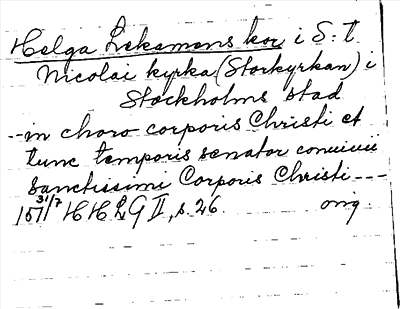 Helga Lekamens kor i S:t
Nicolai kyrka (Storkyrkan) i
Stockholms stad
--in choro corporis Christi et
tunc temporis senator conuiuii
sanctissimi Corporis Christi---
15 31/7 H H L G II, s. 26. orig.